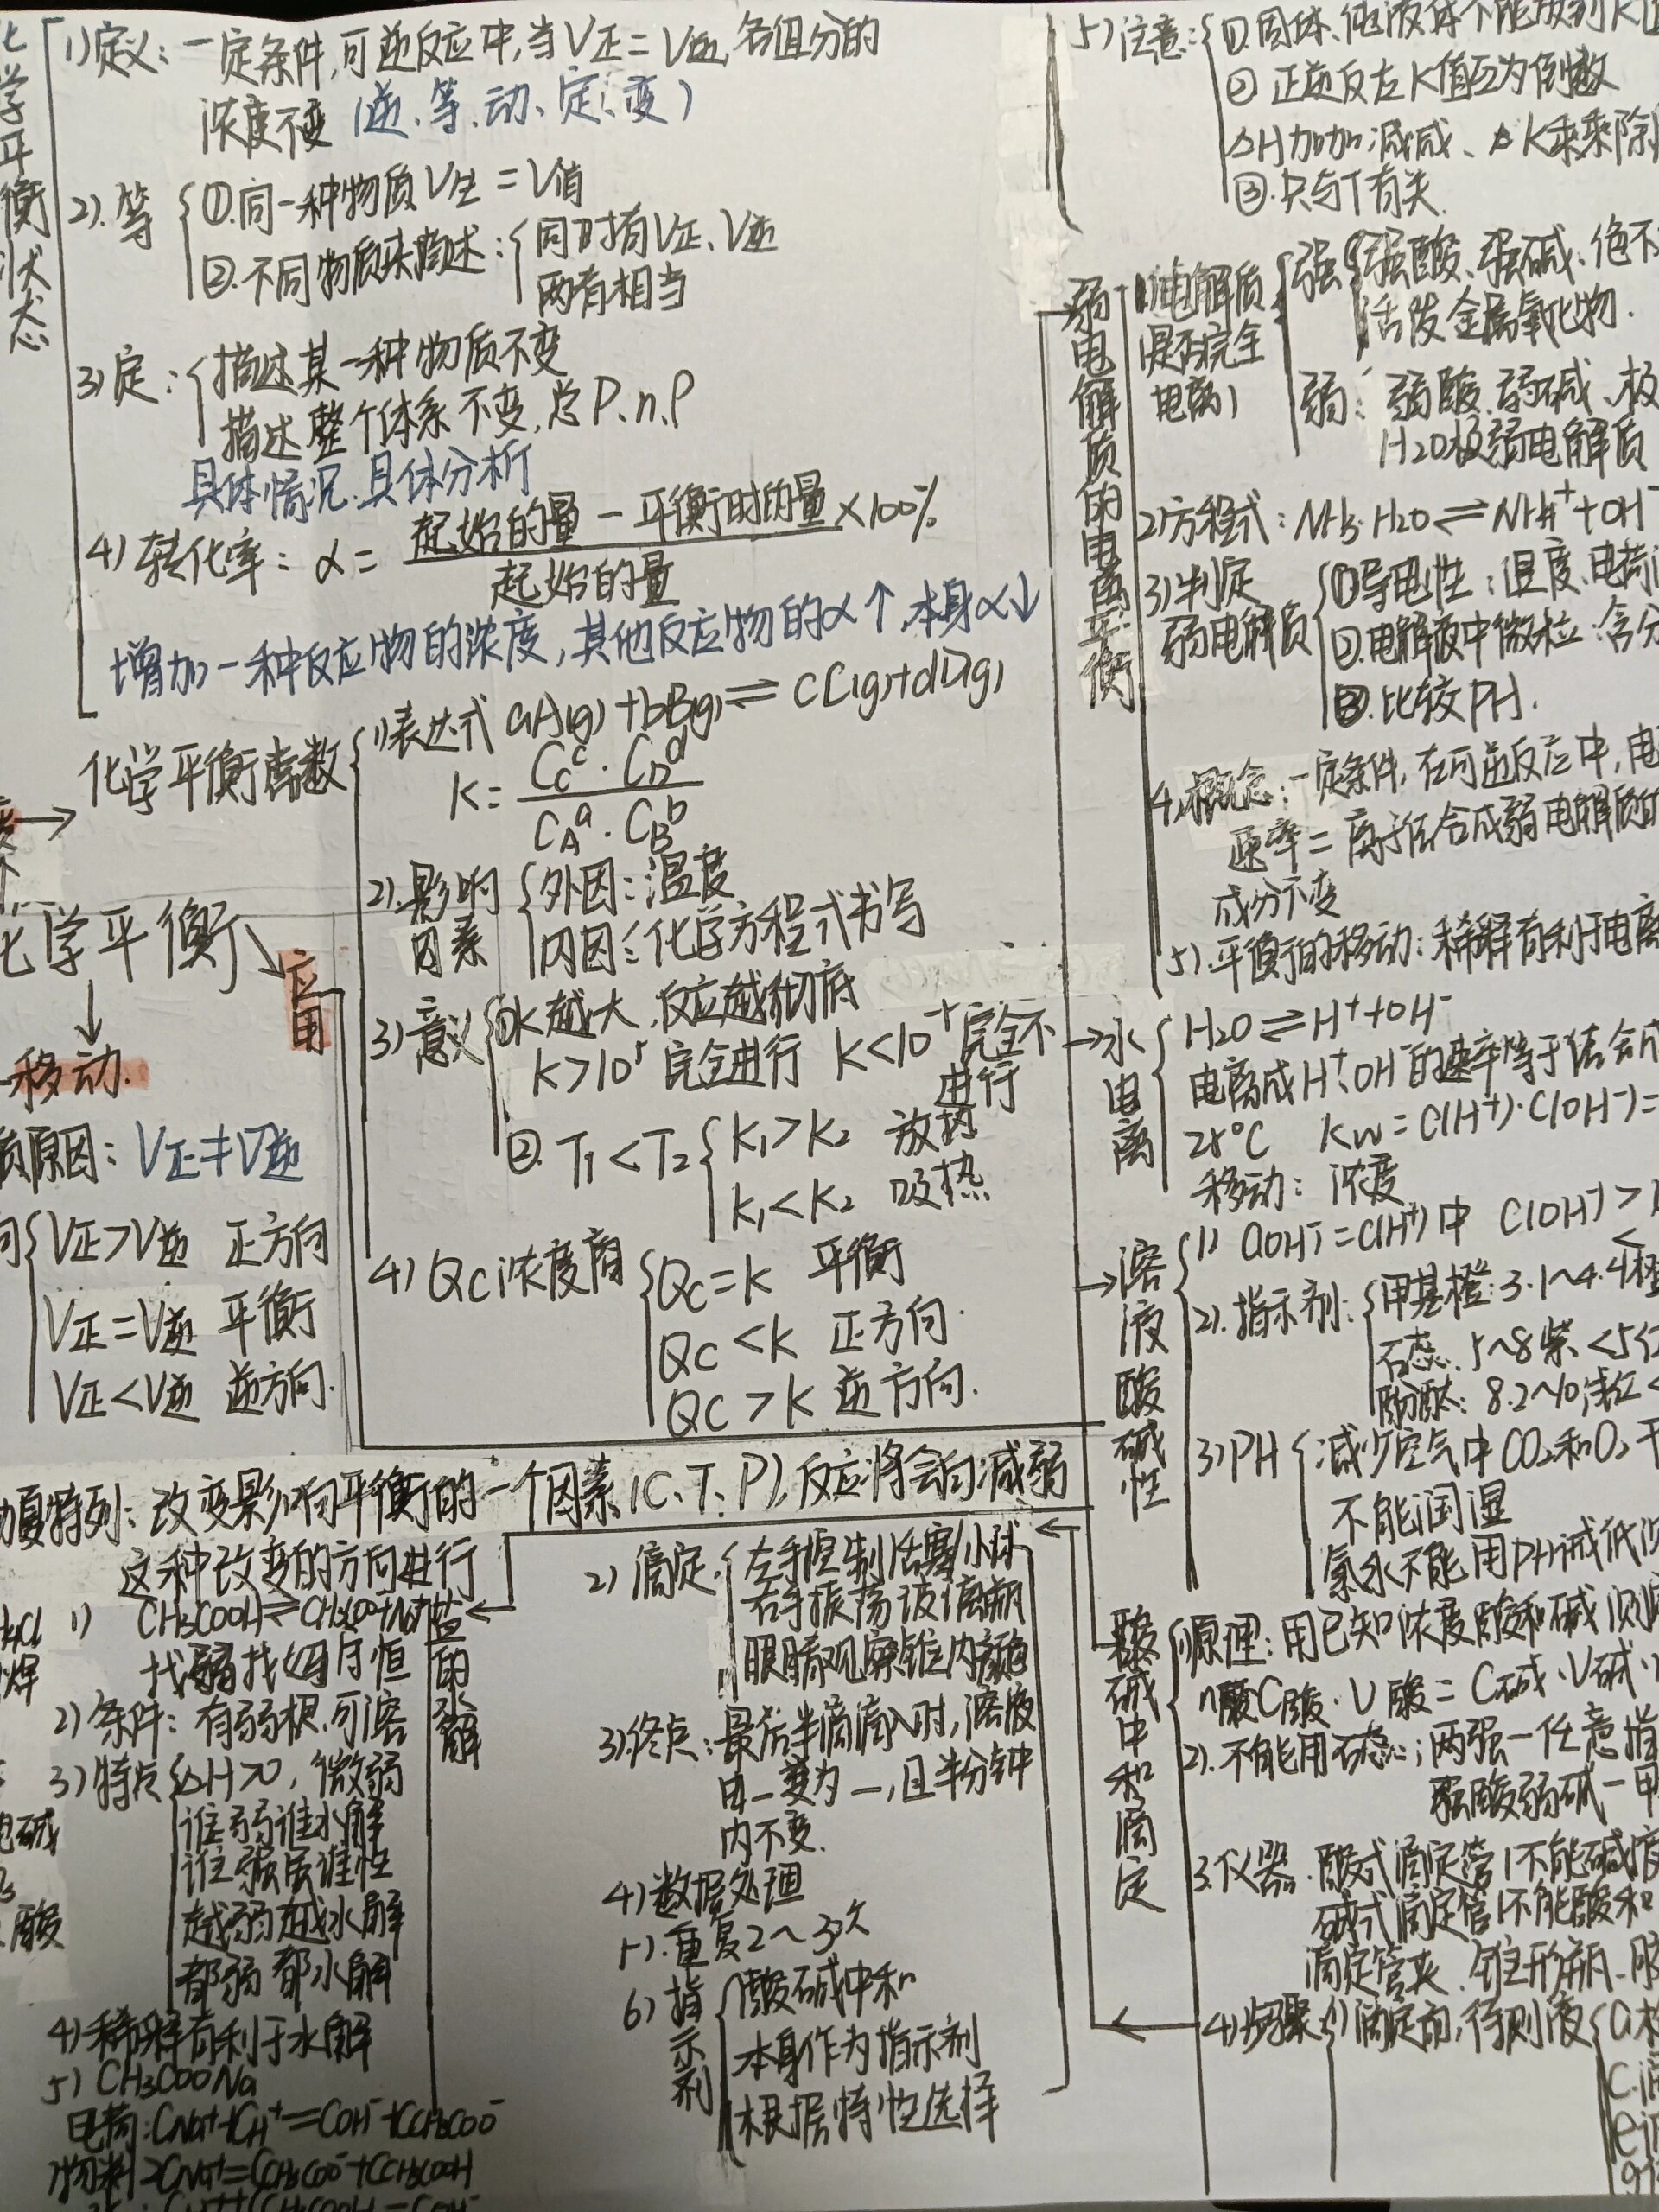 化学平衡状态
1)定义:一定条件,可逆反应中,当V正=V逆,各组分的
浓度不变(逆、等、动、定、变)
2).等
①.同一种物质V生=V值
②.不同物质来描述:
同时描V正、V逆
两者相当
3)定:
描述某一种物质不变
描述整个体系不变,总P、n、ρ
具体情况.具体分析
4)转化率:α=
起始的量-平衡时的量×100%
起始的量
增加一种反应物的浓度,其他反应物的α↑,本身α↓
化学平衡常数
1)表达式 aA(g)+bB(g)⇌cC(g)+dD(g)
K=
Cc^c·C_D^d
C_A^a·C_B^b
2).影响因素
外因:温度
内因:化学方程式书写
3)意义
①K越大,反应越彻底
K>10^5完全进行 K<10^-5完全不
进行
②.T1<T2
K1>K2 放热
K1<K2 吸热
4)Qc浓度商
Qc=K 平衡
Qc<K 正方向.
Qc>K 逆方向.
化学平衡
应用
移动.
原因:V正≠V逆
V正>V逆 正方向
V正=V逆 平衡
V正<V逆 逆方向.
夏特列:改变影响平衡的一个因素(C、T、P),反应将会向减弱
这种改变的方向进行
盐的水解
1) CH3COOH⇌CH3COO
找弱找四月恒
2)条件:有弱根,可溶
3)特点
△H>0,微弱
谁弱谁水解
谁强显谁性
越弱越水解
都弱都水解
4)稀释有利于水解
5)CH3COONa
电荷:CNa⁺+CH⁺=COH⁻+CCH3COO⁻
物料:CNa⁺=CCH3COO⁻+CCH3COOH
2)滴定.
左手控制活塞/小球
右手振荡玻璃瓶
眼睛观察锥内颜色
3).终点:最后半滴滴入时,溶液
由_变为_,且半分钟
内不变.
4)数据处理
5).重复2~3次
6)指示剂
酸碱中和
本身作为指示剂
根据特性选择
5)注意:
①.固体、纯液体不能放到K
②正逆反应K值互为倒数
△H加加减减、K乘乘除
③.只与T有关.
弱电解质的电离平衡
1)电解质
(是否完全
电离)
强
强酸、强碱、绝不
活泼金属氧化物.
弱:弱酸.弱碱、极
H2O极弱电解质
2)方程式:NH3·H2O⇌NH4⁺+OH⁻
3)判定
弱电解质
①导电性:温度、电荷
②.电解液中微粒:含分
③.比较PH.
4.概念:一定条件,在可逆反应中,电
速率=离子结合成弱电解质的
成分不变
5).平衡的移动:稀释有利于电离
水电离
H2O⇌H⁺+OH⁻
电离成H⁺、OH⁻的速率等于结合成
25℃ Kw=C(H⁺)·C(OH⁻)=
移动:浓度
溶液酸碱性
1) C(OH⁻)=C(H⁺)中 C(OH⁻)>
<
2).指示剂:
甲基橙:3.1~4.4橙
石蕊.5~8紫.<5红
酚酞:8.2~10浅红<
3)PH
减少空气中CO2和O2干
不能润湿
氯水不能用PH试低测
酸碱中和滴定
1)原理:用已知浓度酸和碱测
n酸C酸·V酸=C碱·V碱·
2).不能用石蕊;两强一任意指
强酸弱碱一甲
3.仪器.酸式滴定管(不能碱
碱式滴定管(不能酸和
滴定管夹.锥形瓶.
4)步骤
1)滴定前,待测液